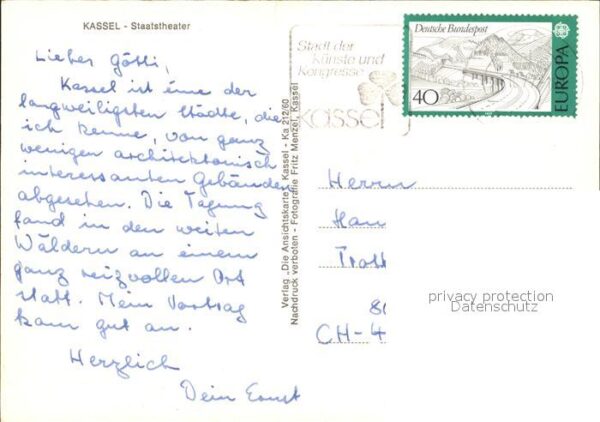 KASSEL - Staatstheater
Lieber Götti,
Kassel ist eine der
langweiligsten Städte, die
ich kenne, von ganz
wenigen architektonisch
interessanten Gebäuden
abgesehen. Die Tagung
fand in den weiten
Wäldern an einem
ganz reizvollen Ort
statt. Mein Vortrag
kam gut an.
Herzlich
Dein Ernst
Verlag „Die Ansichtskarte“, Kassel - Ka 212/60
Nachdruck verboten - Fotografie Fritz Menzel, Kassel
Stadt der
Künste und
Kongresse
kassel
Deutsche Bundespost
40
EUROPA
Herrn
Han
Trott
CH-4
privacy protection
Datenschutz